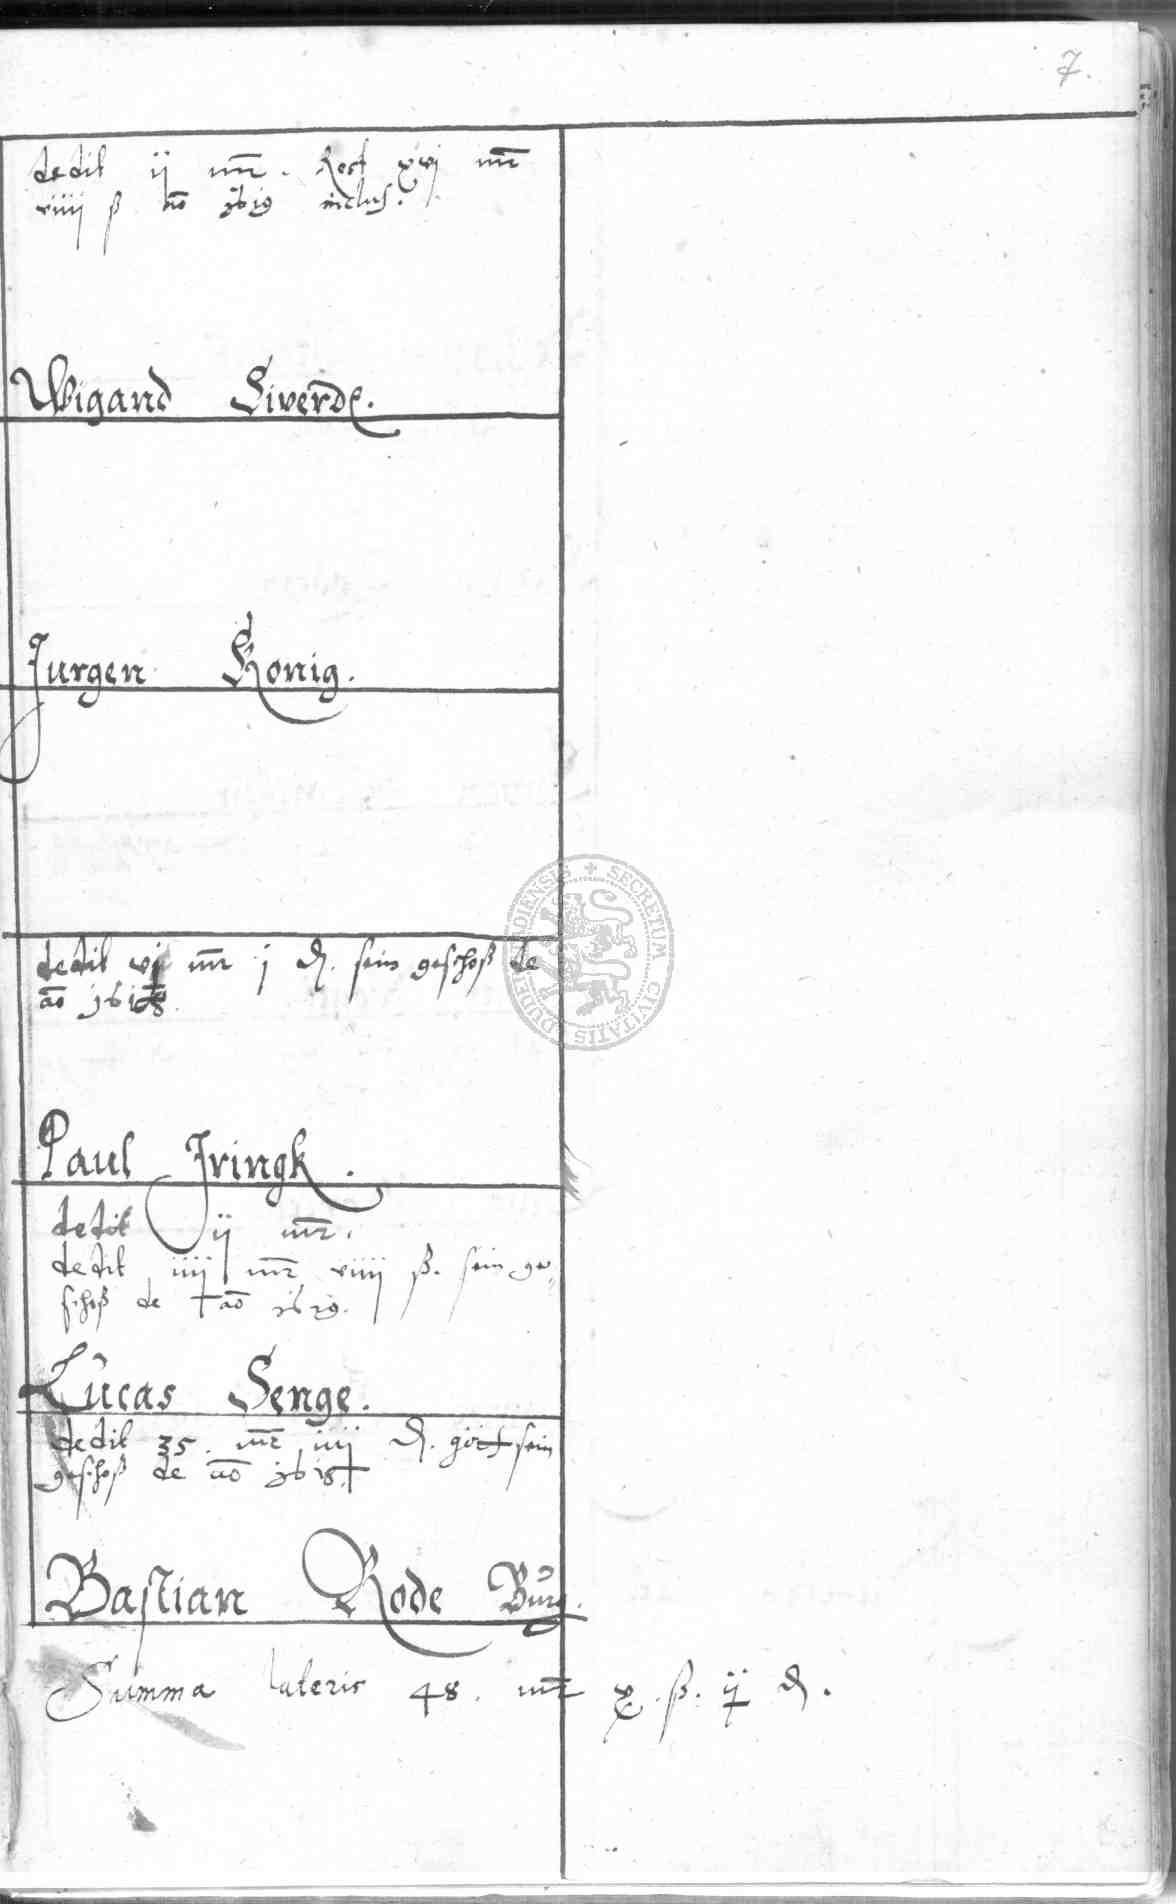 7.
dedit ij mr. Rest xvj mr
viiij ß ao 1619 inclus.
Wigand Siverdc.
Jurgen Konig.
dedit vj mr j d. sein geschoß de
ao 1618.
Paul Jringk.
dedit ij mr.
dedit iiij mr viiij ß. sein ge„
schoß de ao 1619.
Lucas Senge.
dedit 35. mr iiij d. sein
geschoß de ao 1618
Bastian Rode Burg.
Summa lateris 48. mr x. ß. ij d.
SECRETUM CIVITATIS DUDERSTADIENSIS